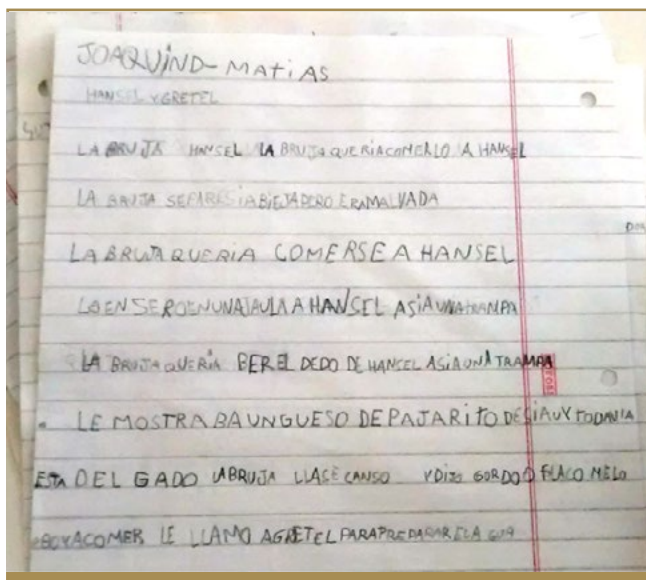 JOAQUIND- MATIAS
HANSEL Y GRETEL
LA BRUJA HANSEL LA BRUJA QUERIACOMERLO A HANSEL
LA BRUJA SEPARESIABIEJAPERO ERAMALVADA
LA BRUJA QUERIA COMERSE A HANSEL
LOENSEROENUNAJAULA A HANSEL ASIAUNATRAMPA
LA BRUJA QUERIA BER EL DEDO DE HANSEL ASIA UNA TRAMPA
LE MOSTRABA UN GUESO DE PAJARITO DESIA UY TODAVIA
ESTA DEL GADO LABRUJA LLASE CANSO Y DIJO GORDO O FLACO MELO
BOYACOMER LE LLAMO AGRETEL PARAPREPARAR ELA